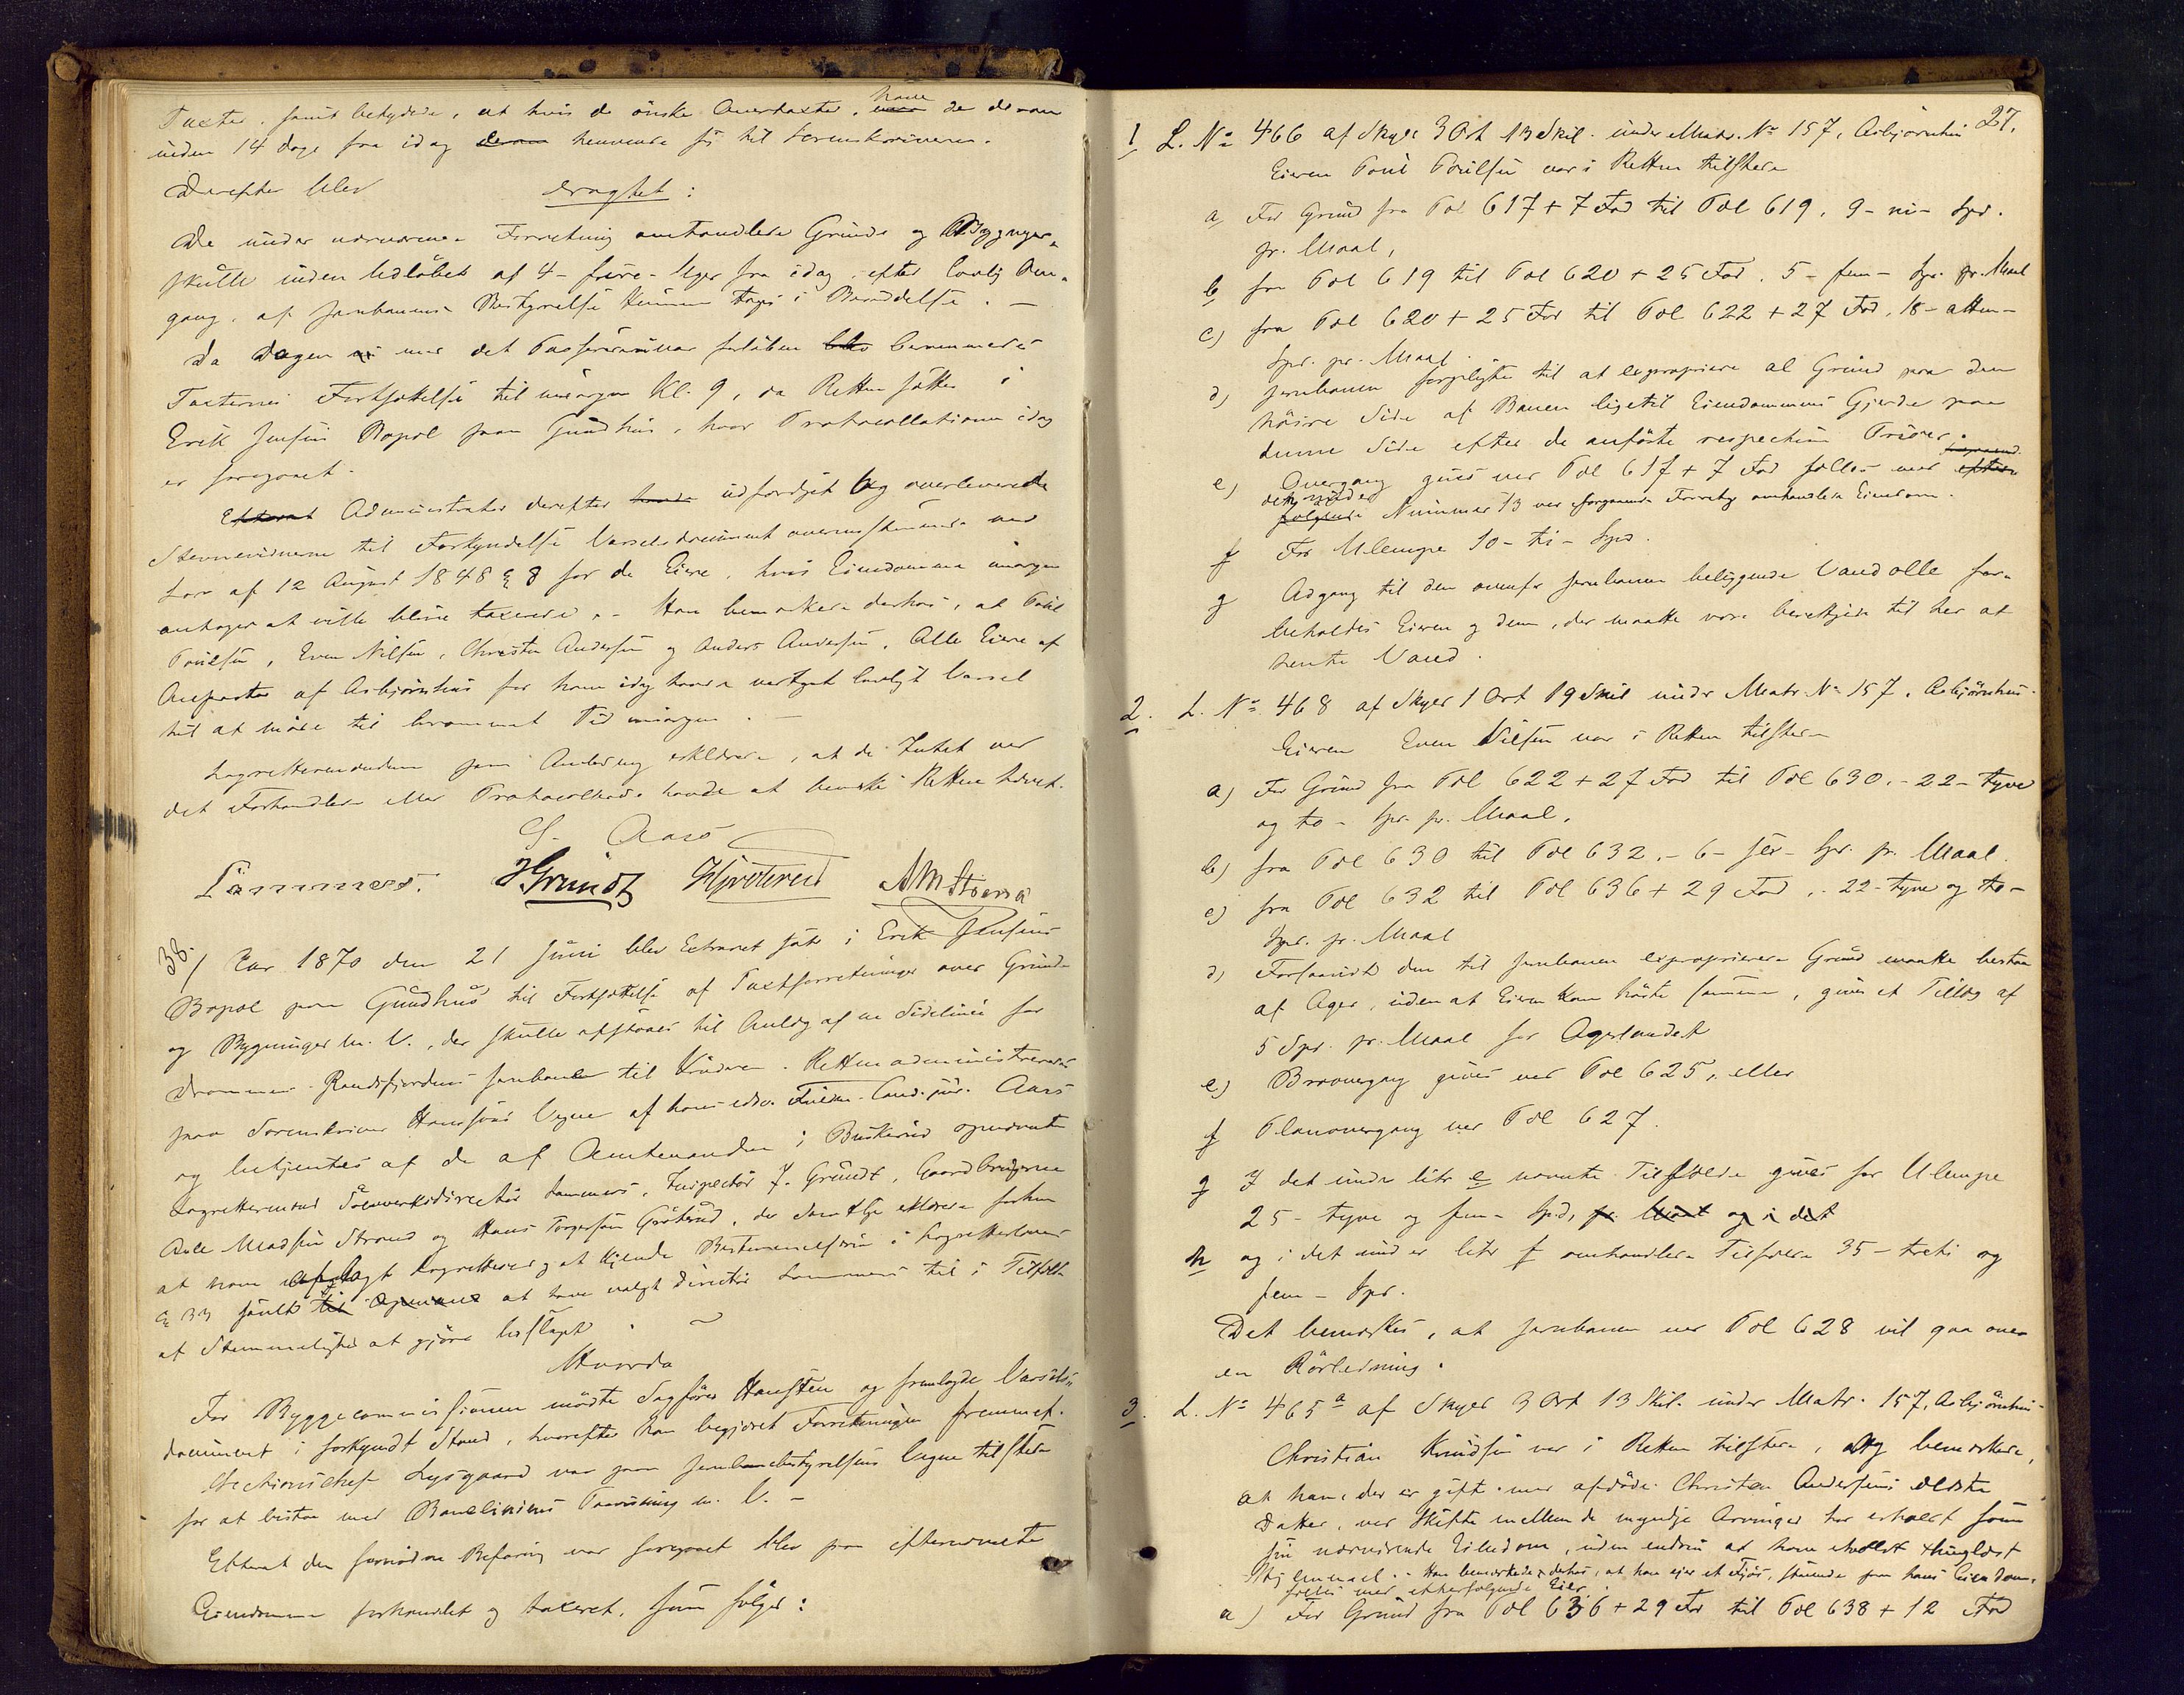 Taxter, samt betydede, at hvis de ønske Overtaxter, have de derom
inden 14 dage fra idag henvende sig til Sorenskriveren.
Derefter blev eragtet:
De under nærværende Forretning omhandlede Grunde og Bygninger
skulle inden Udløbet af 4 - fire - Uger fra idag, efter lovlig Om-
gang, af Jernbanens Bestyrelse kunne tages i Besiddelse. -
Da Dagen nu var det Passerum var forløben berammedes
Taxternes Fortsættelse til imorgen Kl. 9, da Retten sættes i
Erik Jensens Bopæl paa Gundhus, hvor Protocollationen idag
er foregaaet.
Administrator derefter udfærdiget og overleverede
Stevnevidnerne til Forkyndelse Varselsdocument overensstemmende med
Lov af 12 August 1848 § 8 for de Eiere, hvis Eiendomme imorgen
antages at ville blive taxerede. - Han bemærkede derhos, at Poul
Poulsen, Even Nilsen, Christen Andersen og Anders Andersen, Alle Eiere af
Anparter af Asbjørnhus for ham idag havde vedtaget lovligt Varsel
til at møde til berammet Tid imorgen. -
Lagrettemændene paa Anledning erklærede, at de Intet ved
det Forhandlede eller Protocollerede havde at bemærke. Retten hævet.
S. Aars
Lammers. J Grundt HGrøterud AMStrand
38./ Aar 1870 den 21 Juni blev Extraret sat i Erik Jensens
Bopæl paa Gundhus til Fortsættelse af Taxtforretninger over Grunde
og Bygninger m. V., der skulle afstaaes til Anlæg af en Sidelinie fra
Drammen-Randsfjordens Jernbane til Krøderen. Retten administreredes
paa Sorenskriver Hansons Vegne af hans edsv. Fuldm. Cand. jur. Aars
og betjentes af de af Amtmanden i Buskerud opnævnte
Lagrettemænd Sølvværksdirectør Lammers, Inspectør J. Grundt, Gaardbrugerne
Anle Madsen Strand og Hans Torgersen Grøterud, der samtlige erklærede forhen
at have aflagt Lagrettesed og at kjende Bestemmelserne i Lagretteloven
§ 33 samt at have valgt Directør Lammers til i Tilfælde
af Stemmelighed at gjøre Udslaget. -
Hvorda
For Byggecommissionen mødte Sagfører Hansteen og fremlagde Varsels-
document i forkyndt Stand, hvorefter han begjæret Forretningen fremmet.
Sectionschef Lysgaard var paa Jernbanebestyrelsens Vegne tilstede
for at bistaa med Banelinines Paavisning m. V. -
Efterat den fornødne Befaring var foregaaet blev paa efternævnte
Eiendomme forhandlet og taxeret, som følger:
27.
1 L. No 466 af Skyld 3 Ort 13 Skil. under Matr. No 157, Asbjørnhus
Eieren Poul Poulsen var i Retten tilstede
a For Grund fra Pæl 617 + 7 Fod til Pæl 619, 9 - ni - Spd.
pr. Maal,
b fra Pæl 619 til Pæl 620 + 25 Fod, 5 - fem - Spd. pr. Maal
c) fra Pæl 620 + 25 Fod til Pæl 622 + 27 Fod, 18 - atten -
Spd. pr. Maal.
d) Jernbanen forpligtes til at expropriere al Grund paa den
høire Side af Banen ligetil Eiendommens Gjerde paa
denne Side efter de anførte respective Priser.
e) Overgang gives ved Pæl 617 + 7 Fod fælles med
den under
Nummer 13 ved foregaaende Forretning omhandlede Eiendom.
f For Ulempe 10 - ti - Spd.
g Adgang til den ovenfor Jernbanen beliggende Vandolle for-
beholdes Eieren og dem, der maatte være berettiget til her at
hente Vand.
2. L. No 468 af Skyld 1 Ort 19 Skil under Matr. No 157, Asbjørnhus.
Eieren Even Nilsen var i Retten tilstede
a) For Grund fra Pæl 622 + 27 Fod til Pæl 630, - 22 - tyve
og to - Spd. pr. Maal,
b) fra Pæl 630 til Pæl 632, - 6 - sex - Spd. pr. Maal.
c) fra Pæl 632 til Pæl 636 + 29 Fod, - 22 - tyve og to -
Spd. pr. Maal
d) Forsaavidt den til Jernbanen exproprierede Grund maatte bestaa
af Ager, uden at Eieren kan høste samme, gives et Tillæg af
5 Spd. pr. Maal for Agerlandet
e) Broovergang gives ved Pæl 625, eller
f Planovergang ved Pæl 627.
g I det under litr e nævnte Tilfælde gives for Ulempe
25 - tyve og fem - Spd, pr. Maal og i det
h og i det under litr f omhandlede Tilfælde 35 - treti og
fem - Spd.
Det bemærkes, at Jernbanen ved Pæl 628 vil gaa over
en Rørledning.
3. L. No 465 a af Skyld 3 Ort 13 Skil. under Matr. 157, Asbjørnhus.
Christian Knudsen var i Retten tilstede, og bemærkede,
at han, der er gift med afdøde Christen Andersens ældste
Datter, ved Skifte mellem de myndige Arvinger har erholdt som
sin nærværende Eiendom, uden endnu at have erholdt thinglæst
Hjemmel. - Han bemærkede derhos, at han eier et Fjøs, staaende paa hans Eiendom,
fælles med efterfølgende Eier.
a) For Grund fra Pæl 636 + 29 Fod til Pæl 638 + 12 Fod